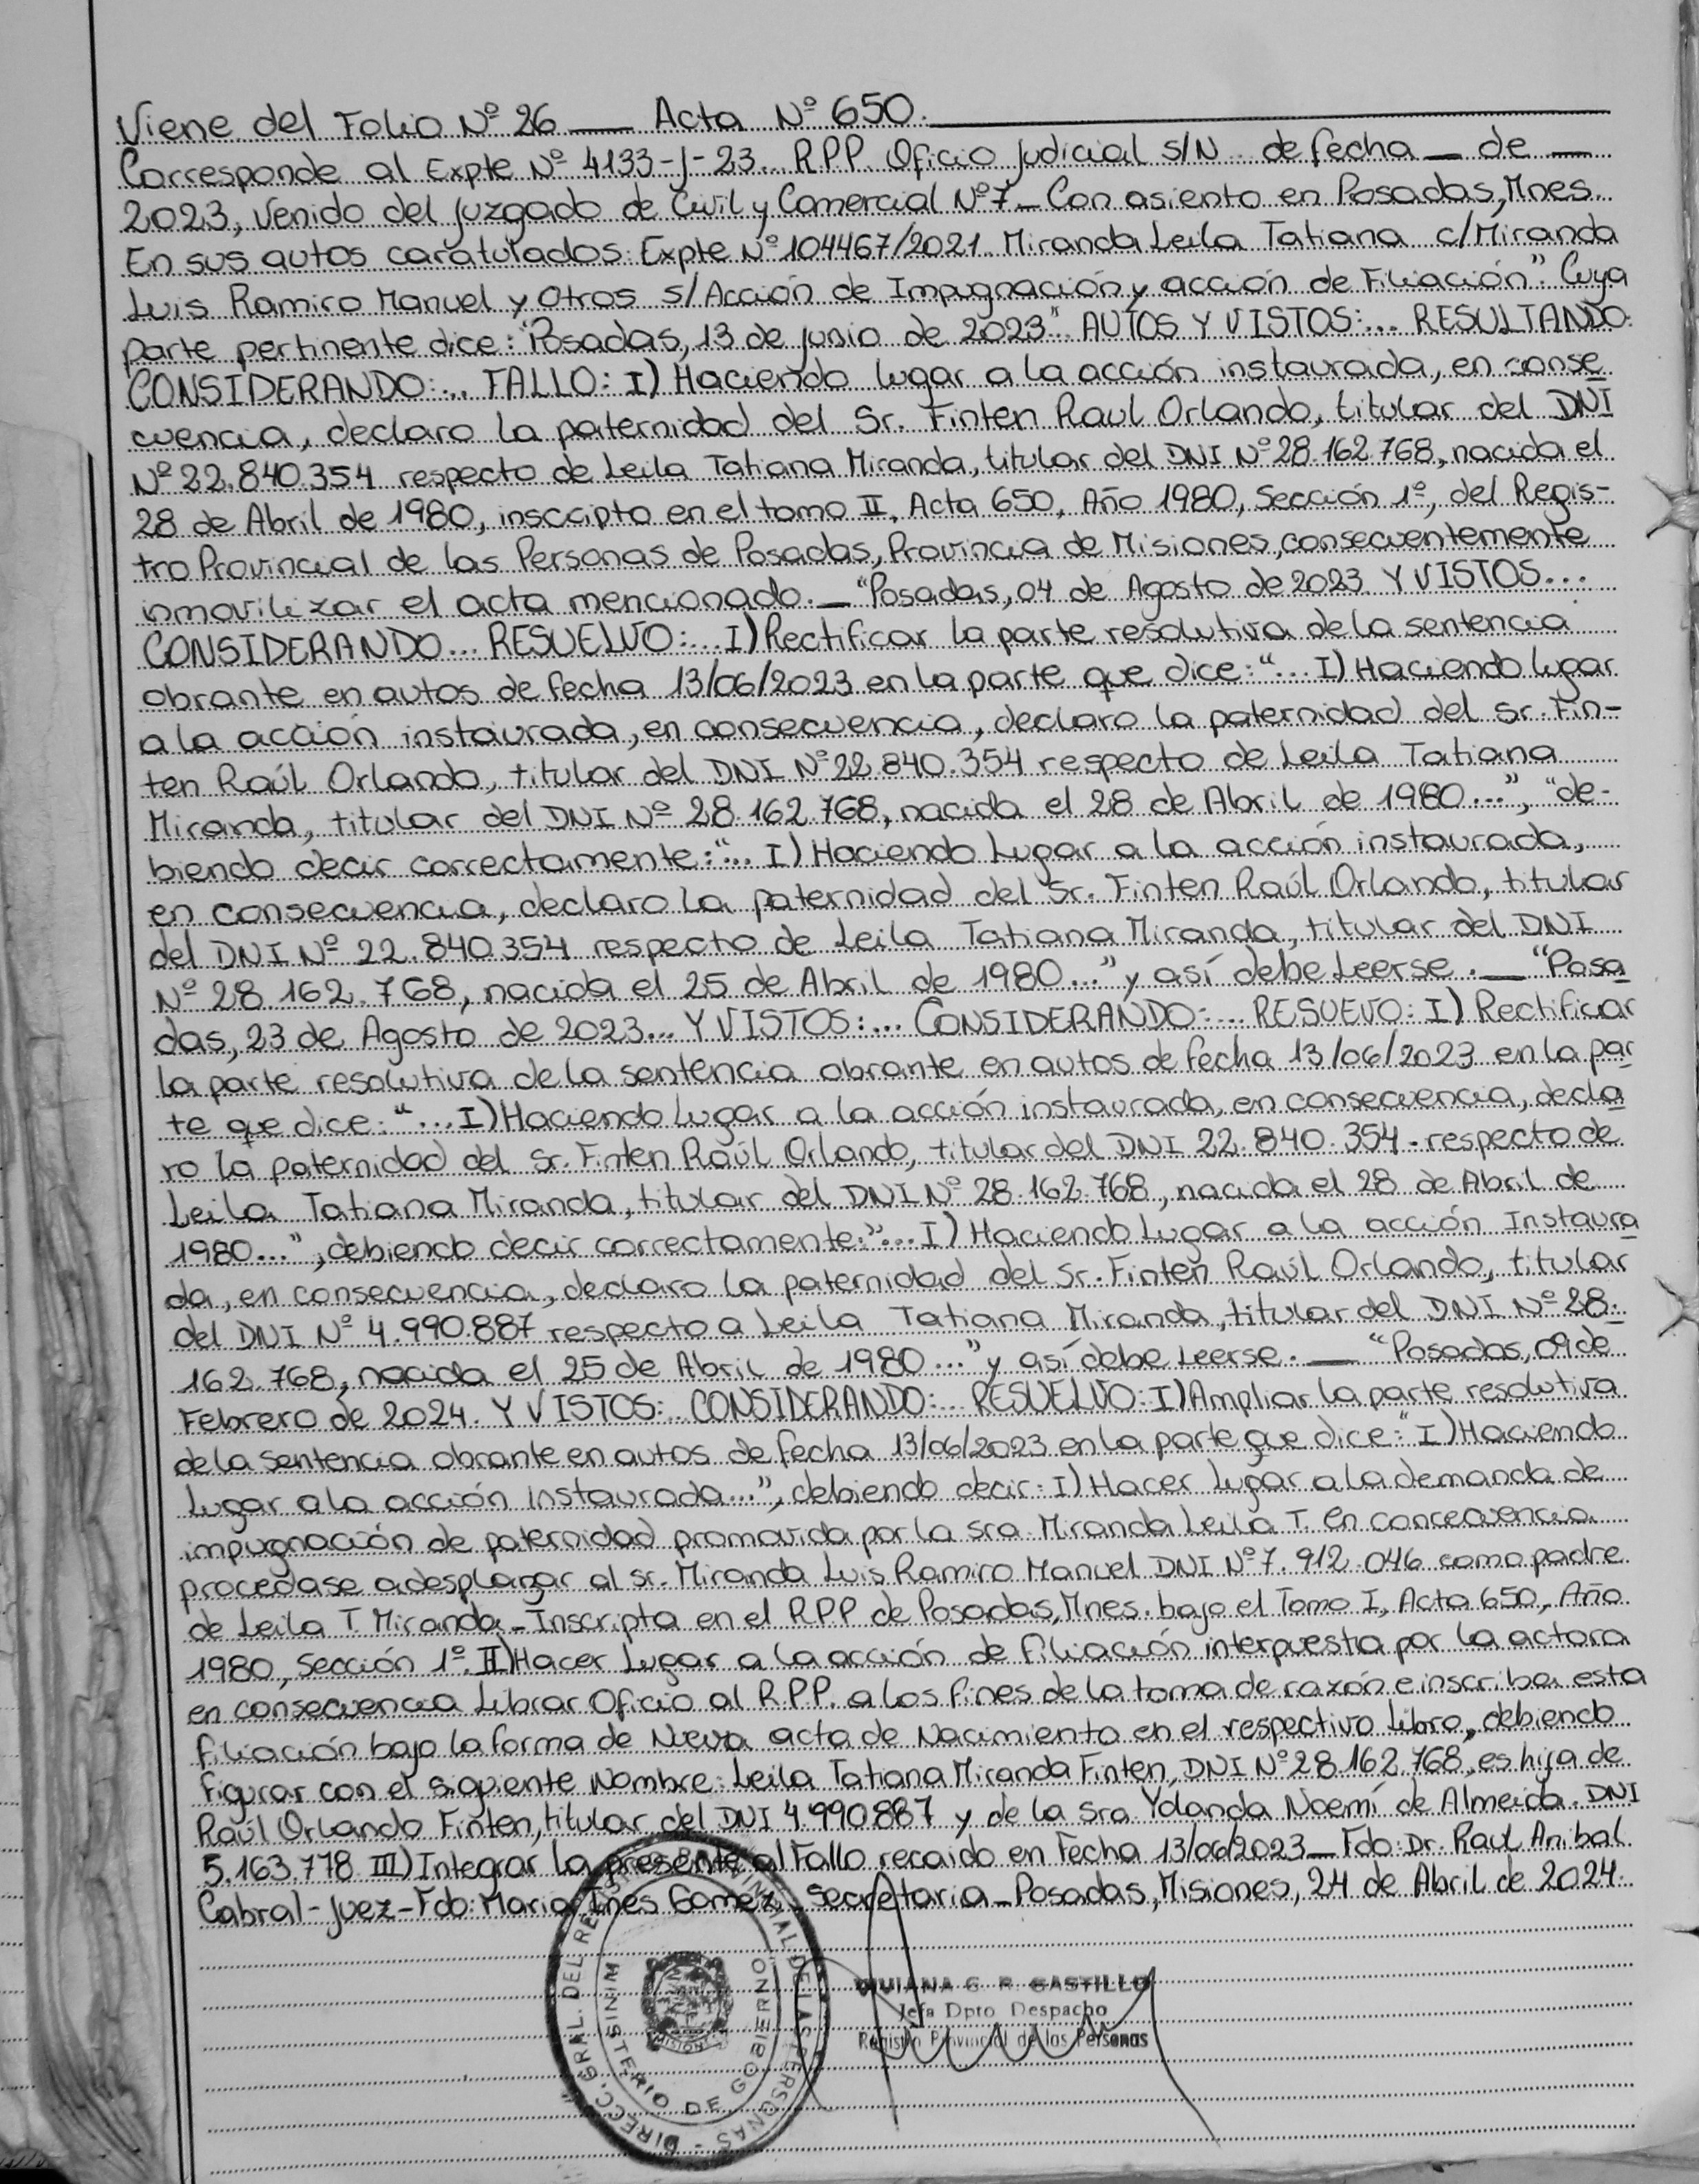 Viene del Folio Nº 26 — Acta Nº 650.
Corresponde al Expte Nº 4133-J-23. R.P.P. Oficio Judicial S/N de fecha — de —
2023, Venido del Juzgado de Civil y Comercial Nº 7 — Con asiento en Posadas, Mnes.
En sus autos caratulados: Expte Nº 104467/2021. Miranda Leila Tatiana c/Miranda
Luis Ramiro Manuel y Otros s/Acción de Impugnación y acción de Filiación". Cuya
parte pertinente dice: "Posadas, 13 de junio de 2023" AUTOS Y VISTOS:... RESULTANDO:
CONSIDERANDO:... FALLO: I) Haciendo lugar a la acción instaurada, en conse
cuencia, declaro la paternidad del Sr. Finten Raul Orlando, titular del DNI
Nº 22.840.354 respecto de Leila Tatiana Miranda, titular del DNI Nº 28.162.768, nacida el
28 de Abril de 1980, inscripto en el tomo II, Acta 650, Año 1980, Sección 1º, del Regis-
tro Provincial de las Personas de Posadas, Provincia de Misiones, consecuentemente
inmovilizar el acta mencionado. — "Posadas, 04 de Agosto de 2023. Y VISTOS...
CONSIDERANDO... RESUELVO:... I) Rectificar la parte resolutiva de la sentencia
obrante en autos de fecha 13/06/2023 en la parte que dice: "... I) Haciendo lugar
a la acción instaurada, en consecuencia, declaro la paternidad del Sr. Fin-
ten Raúl Orlando, titular del DNI Nº 22.840.354 respecto de Leila Tatiana
Miranda, titular del DNI Nº 28.162.768, nacida el 28 de Abril de 1980...", "de-
biendo decir correctamente: "... I) Haciendo Lugar a la acción instaurada,
en consecuencia, declaro la paternidad del Sr. Finten Raúl Orlando, titular
del DNI Nº 22.840.354 respecto de Leila Tatiana Miranda, titular del DNI
Nº 28.162.768, nacida el 25 de Abril de 1980..." y así debe Leerse. — "Posa
das, 23 de Agosto de 2023... Y VISTOS:... CONSIDERANDO:... RESUEVO: I) Rectificar
la parte resolutiva de la sentencia obrante en autos de fecha 13/06/2023 en la par
te que dice: "... I) Haciendo Lugar a la acción instaurada, en consecuencia, decla
ro la paternidad del Sr. Finten Raúl Orlando, titular del DNI 22.840.354 - respecto de
Leila Tatiana Miranda, titular del DNI Nº 28.162.768, nacida el 28 de Abril de
1980...", debiendo decir correctamente: "... I) Haciendo Lugar a la acción Instaura
da, en consecuencia, declaro la paternidad del Sr. Finten Raúl Orlando, titular
del DNI Nº 4.990.887 respecto a Leila Tatiana Miranda, titular del DNI Nº 28.
162.768, nacida el 25 de Abril de 1980..." y así debe Leerse. — "Posadas, 09 de
Febrero de 2024. Y VISTOS:.. CONSIDERANDO:.. RESUELVO: I) Ampliar la parte resolutiva
de la sentencia obrante en autos de fecha 13/06/2023 en la parte que dice: "I) Haciendo
Lugar a la acción instaurada...", debiendo decir: I) Hacer Lugar a la demanda de
impugnación de paternidad promovida por la Sra. Miranda Leila T. En concecuencia
procedase a desplazar al sr. Miranda Luis Ramiro Manuel DNI Nº 7.912.046 como padre
de Leila T. Miranda - Inscripta en el RPP de Posadas, Mnes. bajo el Tomo I, Acta 650, Año
1980, Sección 1º. II) Hacer Lugar a la acción de filiación interpuesta por la actora
en consecuencia Librar Oficio al R.P.P. a los fines de la toma de razón e inscriba esta
filiación bajo la forma de Nueva acta de Nacimiento en el respectivo Libro, debiendo
figurar con el siguiente Nombre: Leila Tatiana Miranda Finten, DNI Nº 28.162.768, es hija de
Raúl Orlando Finten, titular del DNI 4.990.887 y de la Sra Yolanda Noemí de Almeida. DNI
5.163.778 III) Integrar la presente al Fallo recaido en Fecha 13/06/2023 — Fdo: Dr. Raul Anibal
Cabral - Juez - Fdo: Maria Ines Gomez - Secretaria - Posadas, Misiones, 24 de Abril de 2024.
DIRECC. GRAL. DEL REGISTRO PROVINCIAL DE LAS PERSONAS
MINISTERIO DE GOBIERNO
MISIONES
VIVIANA G. R. CASTILLO
Jefa Dpto Despacho
Registro Provincial de las Personas